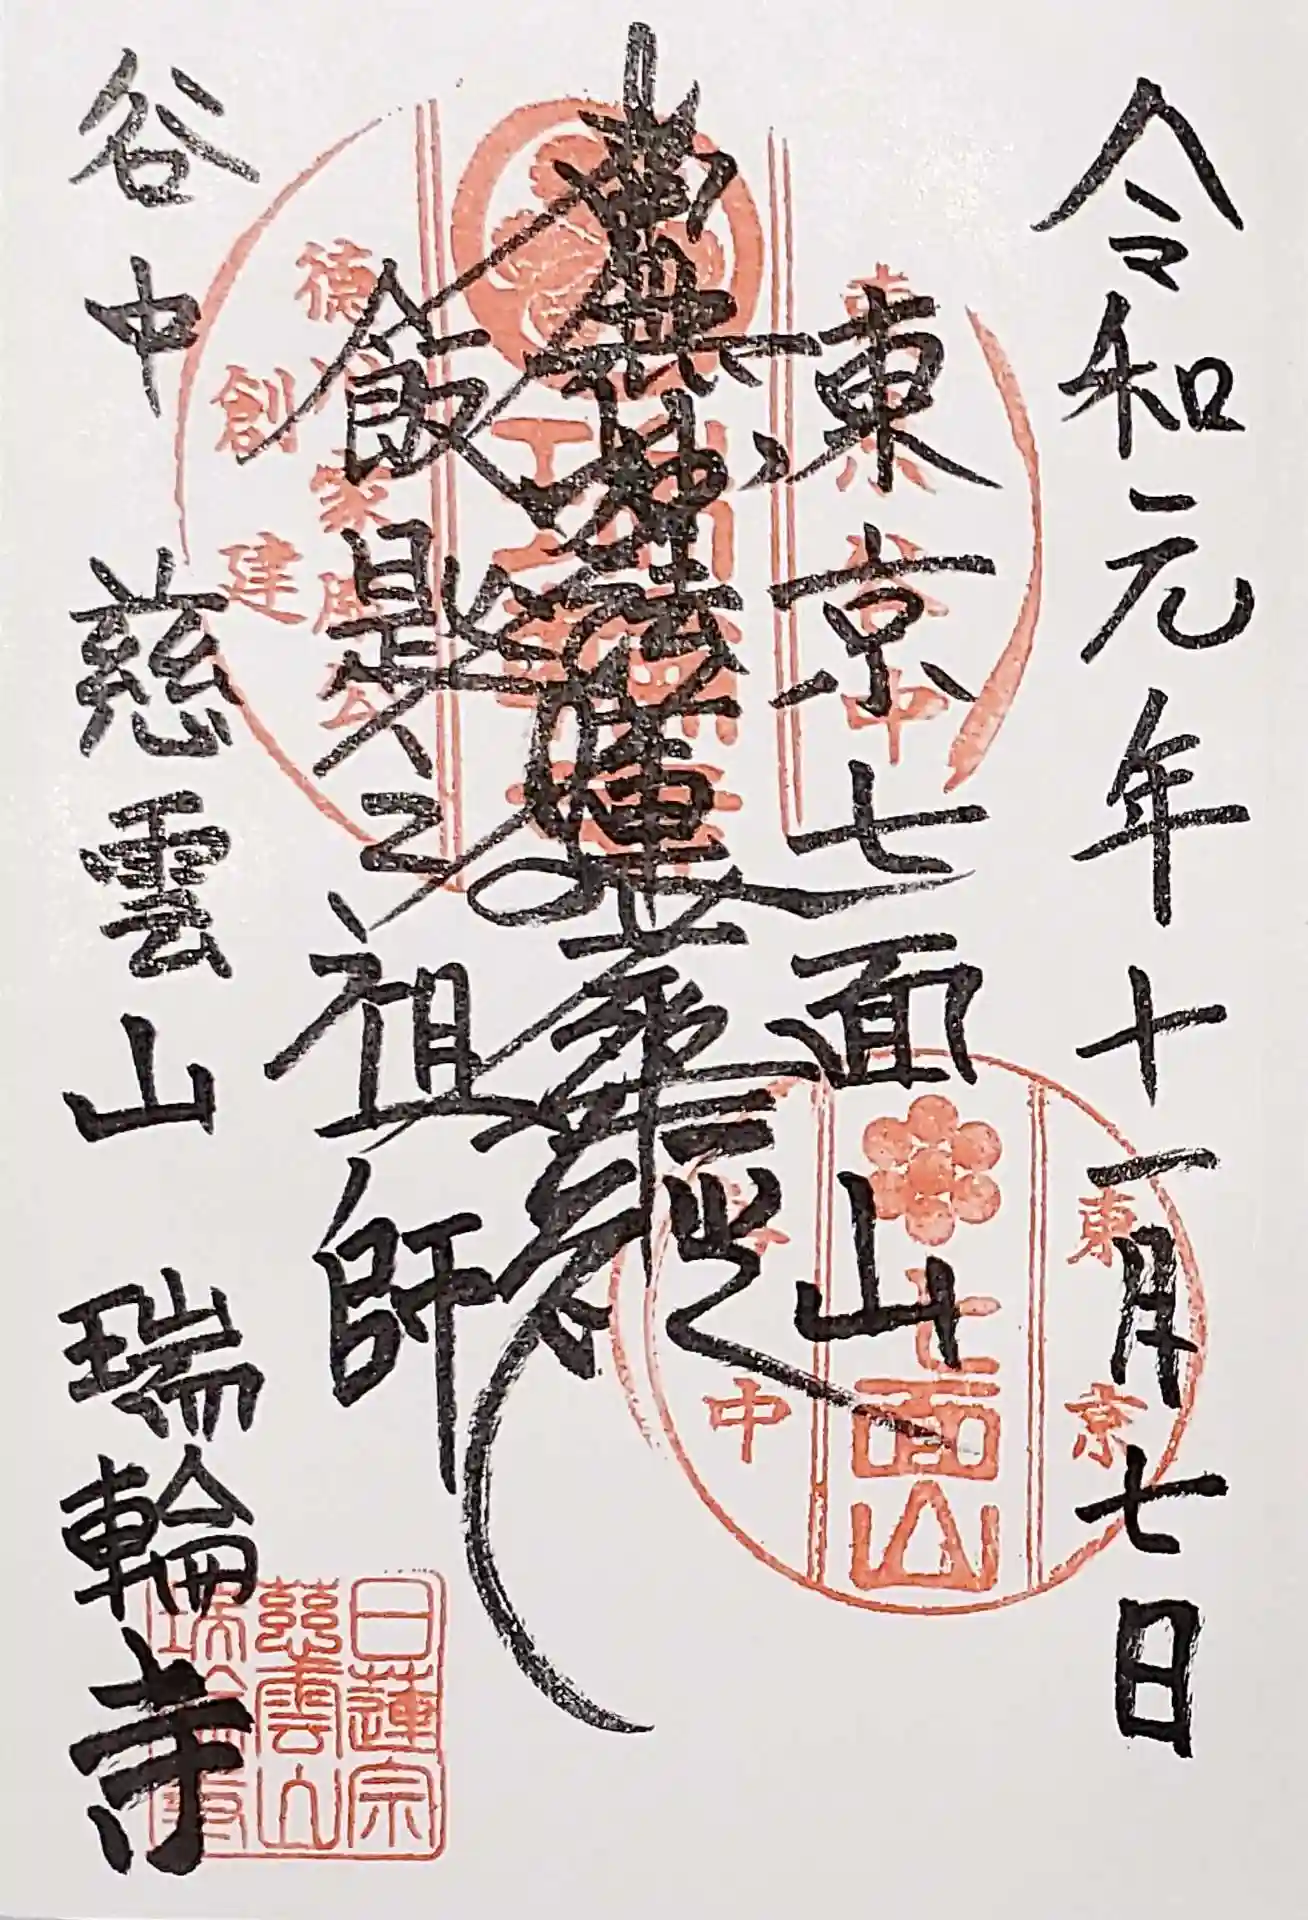 令和元年十一月七日
東京七面山
南無妙法蓮華経
飯匙之祖師
谷中 慈雲山 瑞輪寺
東京
谷中
徳川家康公
創建
東京
中
七面山
日蓮宗
慈雲山
瑞輪寺